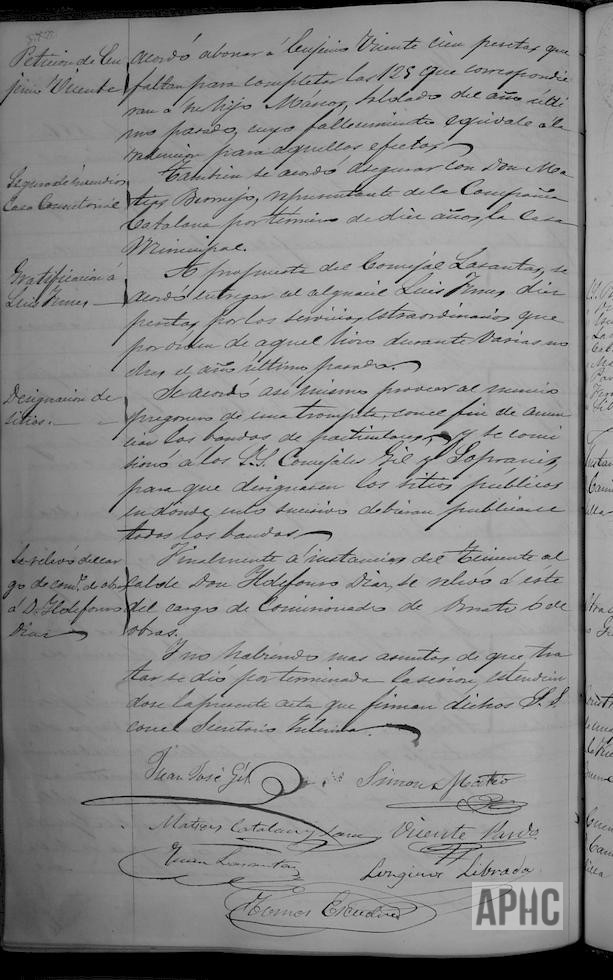 Peticion de Eu
jinio Vicente
acordó abonar á Eujinio Vicente cien pesetas que
faltan para completar las 125 que correspondie
ran a su hijo Márcos, soldado del año últi
mo pasado, cuyo fallecimiento equivale á la
redencion para aquellos efectos.
Seguro de incendios
Casa Consistorial
Tambien se acordó asegurar con Don Ma
tias Bermejo, representante de la Compañia
Catalana por termino de diez años, la casa
Municipal.
Gratificacion á
Luis
A propuesta del Concejal Lasantas, se
acordó entregar al alguacil Luis diez
pesetas, por los servicios estraordinarios que
por orden de aquel hizo durante varias no
ches el año último pasado.
Designacion de
sitios.
Se acordó asi mismo proveer al nuevo
pregonero de una trompeta, con el fin de anun
ciar los bandos de particulares, y se comi
sionó á los S.S. Concejales Gil y Sopranis,
para que designasen los sitios públicos
en donde en lo sucesivo debieran publicarse
todos los bandos.
Se relevó del car
go de com.º de obras
á D. Ildefonso
Diaz
Finalmente á instancias del Teniente al
calde Don Ildefonso Diaz, se relevó á este
del cargo de Comisionado de Ornato ó de
obras.
Y no habiendo mas asuntos de que tra
tar se dió por terminada la sesion, estendien
dose la presente acta que firman dichos S.S.
con el Secretario Interino.
Juan José Gil
Simon Mateo
Matias Catalan y
Vicente Pardo
Juan Lasantas
Longinos Librada
Tomas Escudero
APHC